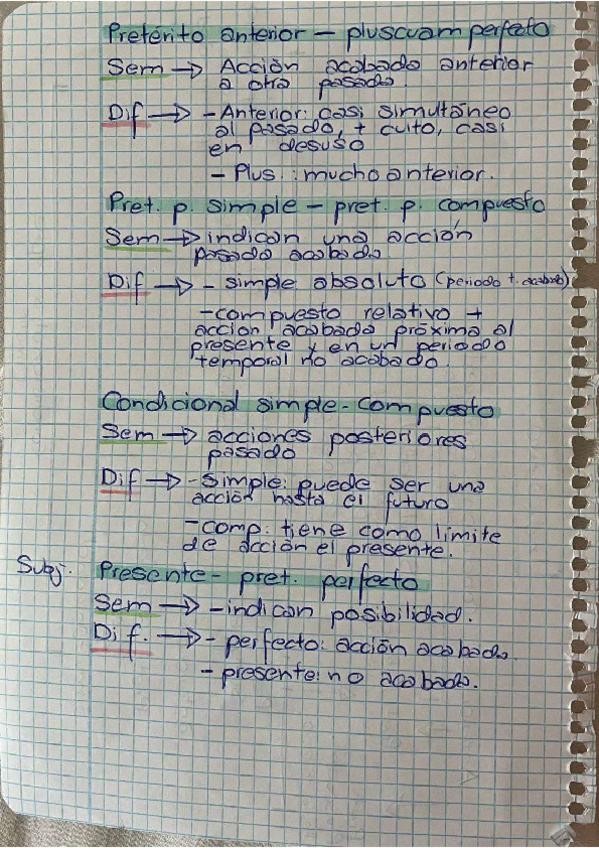 Pretérito anterior – pluscuamperfecto
Sem → Acción acabada anterior
a otra pasada.
Dif → - Anterior: casi simultáneo
al pasado, + culto, casi
en desuso
- Plus.: mucho anterior.
Pret. p. simple – pret. p. compuesto
Sem → indican una acción
pasada acabada
Dif → - simple absoluto (periodo t. acabado)
- compuesto relativo +
acción acabada próxima al
presente y en un periodo
temporal no acabado.
Condicional simple - compuesto
Sem → acciones posteriores
pasado
Dif → - Simple: puede ser una
acción hasta el futuro
- comp: tiene como límite
de acción el presente.
Subj. Presente - pret. perfecto
Sem → - indican posibilidad.
Dif. → - perfecto: acción acabada.
- presente: no acabada.